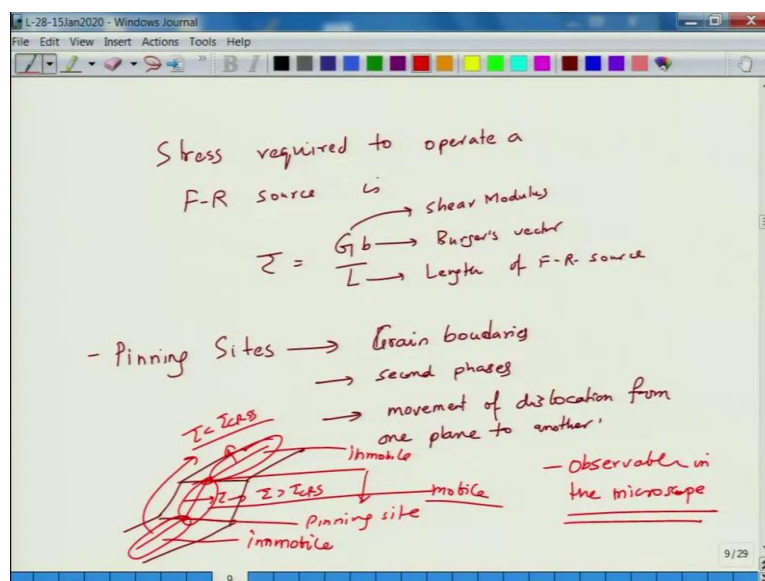 L-28-15Jan2020 - Windows Journal
File Edit View Insert Actions Tools Help
B I
Stress required to operate a
F-R source is
τ = Gb / L
G → Shear Modulus
b → Burger's vector
L → Length of F-R- source
- Pinning Sites → Grain boudaries
→ second phases
→ movement of dislocation from
one plane to another.
τ < τCRSS
immobile
τ → τ > τCRS
motile
pinning site
immobile
- Observable in
the microscope
9/29
9